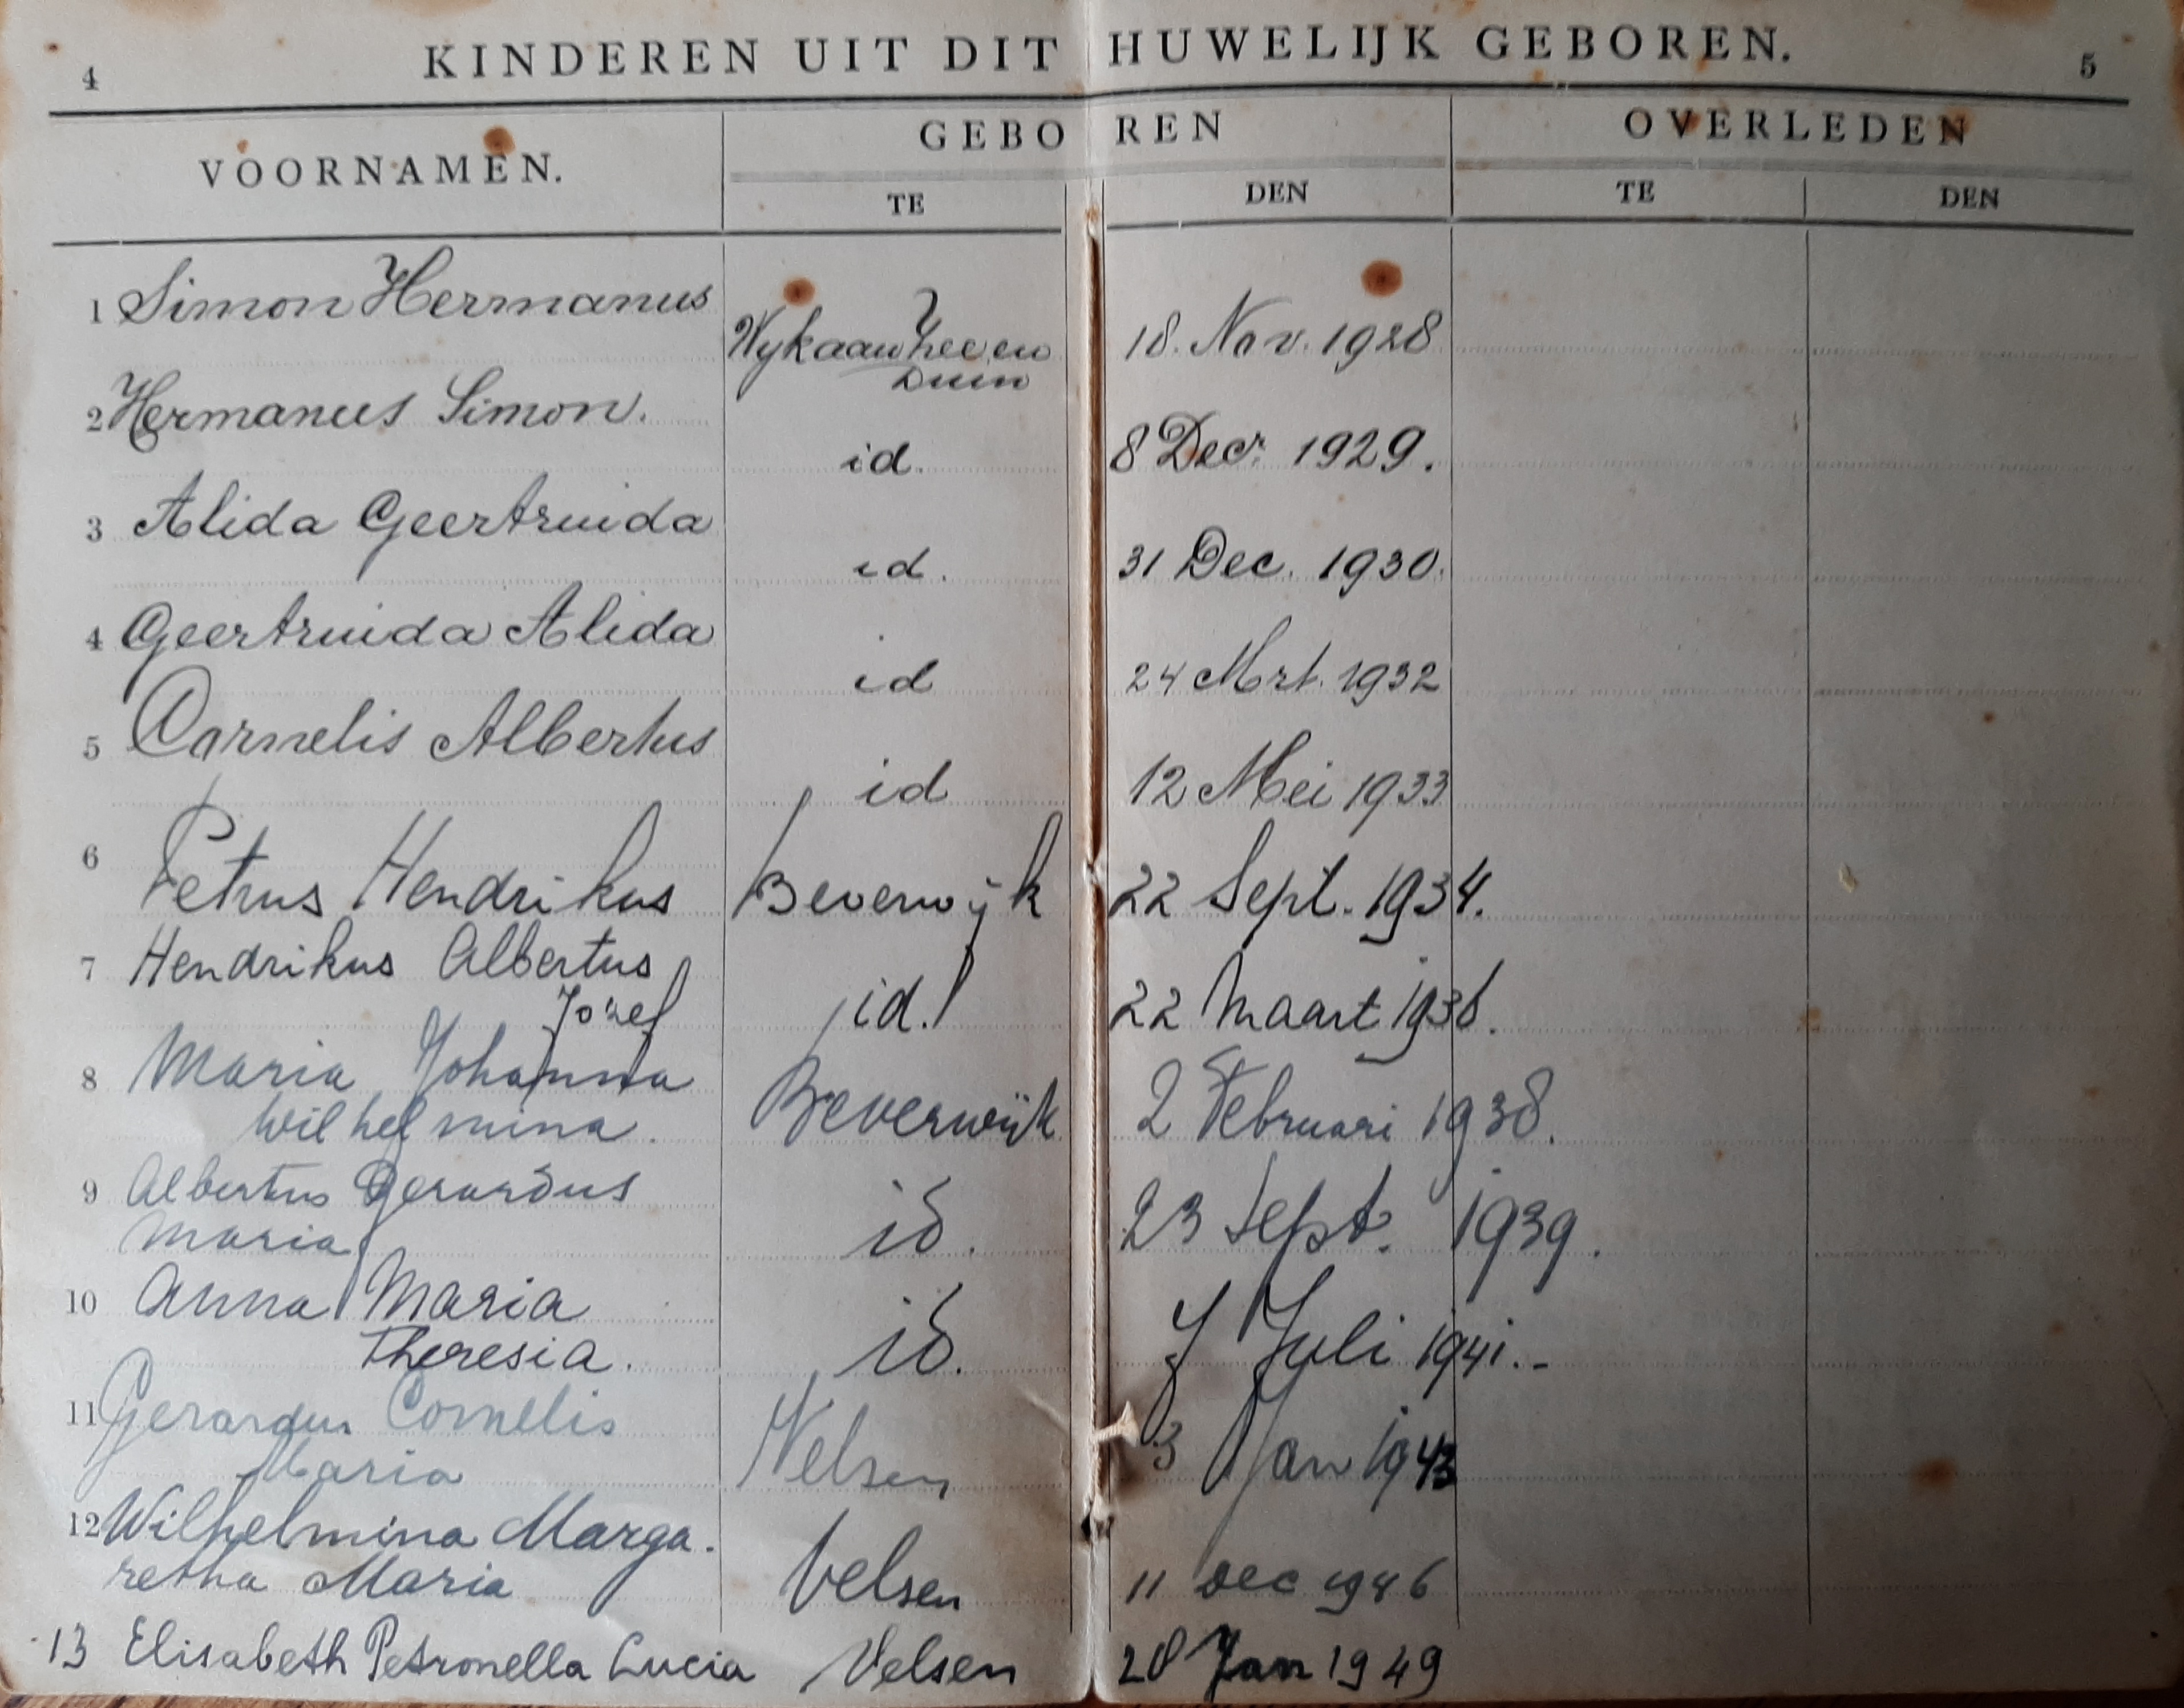 4 KINDEREN UIT DIT HUWELIJK GEBOREN. 5
VOORNAMEN. GEBOREN OVERLEDEN
TE DEN TE DEN
1 Simon Hermanus
Wykaanzee en 18. Nov. 1928
Duin
2 Hermanus Simon.
id. 8 Decr. 1929.
3 Alida Geertruida
id. 31 Dec. 1930.
4 Geertruida Alida
id 24 Mrt. 1932
5 Cornelis Albertus
id 12 Mei 1933
6
Petrus Hendrikus Beverwijk 22 Sept. 1934.
7 Hendrikus Albertus
Jozef id. 22 Maart 1936.
8 Maria Johanna
Wilhelmina. Beverwijk 2 Februari 1938.
9 Albertus Gerardus
Maria id. 23 Sept. 1939.
10 Anna Maria
Theresia. id. 7 Juli 1941.-
11 Gerardus Cornelis
Maria Velsen 3 Jan 1943
12 Wilhelmina Marga.
retha Maria Velsen 11 Dec 1946
13 Elisabeth Petronella Lucia Velsen 20 Jan 1949